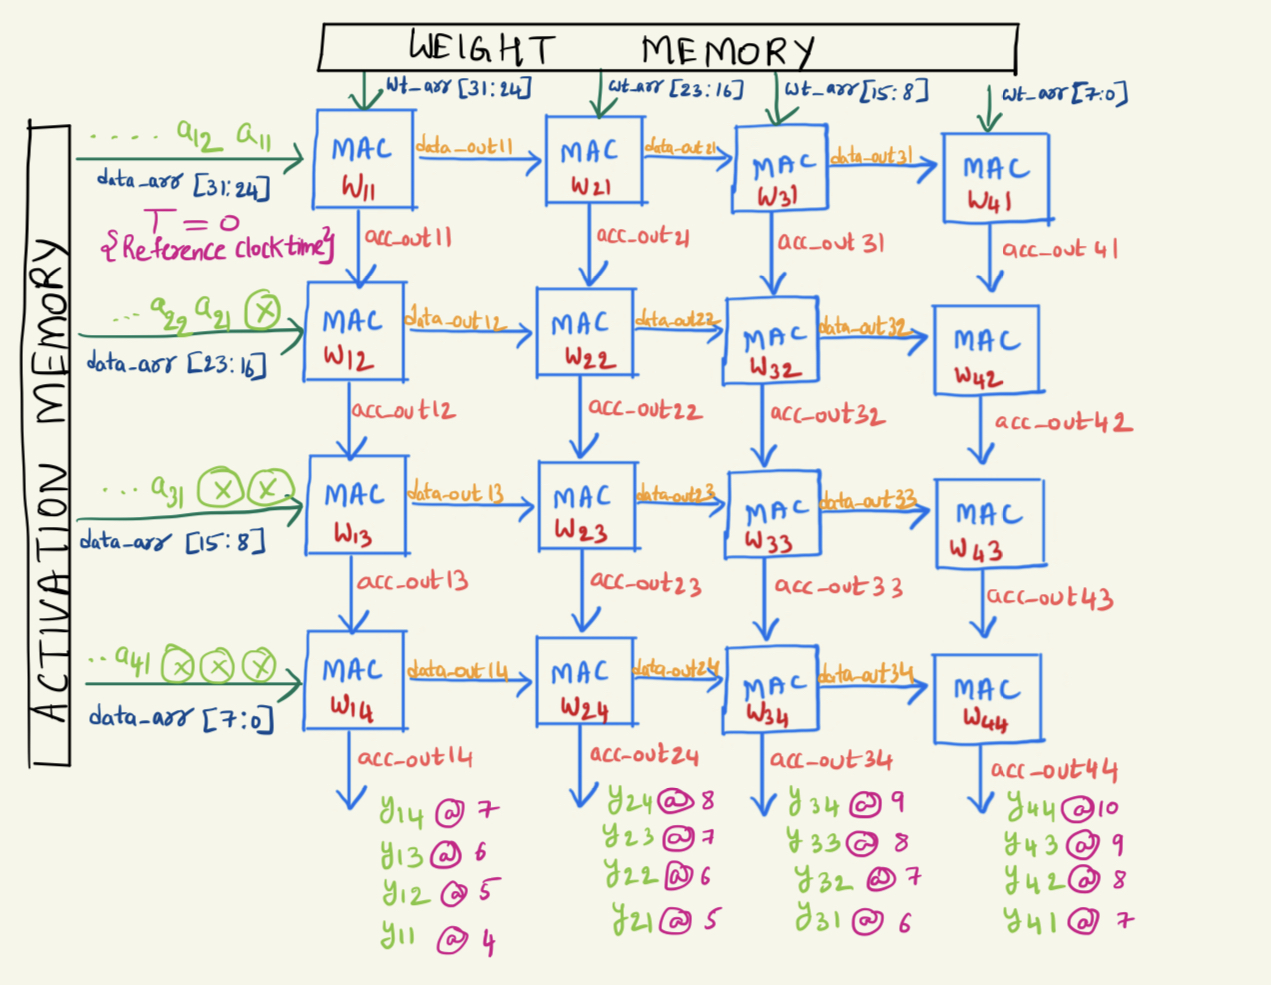 WEIGHT MEMORY
wt_arr [31:24] wt_arr [23:16] wt_arr [15:8] wt_arr [7:0]
ACTIVATION MEMORY
..... a12 a11
data_arr [31:24]
T = 0
{Reference clock time}
MAC W11 data_out11 MAC W21 data_out21 MAC W31 data_out31 MAC W41
acc_out11 acc_out21 acc_out31 acc_out41
... a22 a21 X
data_arr [23:16]
MAC W12 data_out12 MAC W22 data_out22 MAC W32 data_out32 MAC W42
acc_out12 acc_out22 acc_out32 acc_out42
... a31 X X
data_arr [15:8]
MAC W13 data_out13 MAC W23 data_out23 MAC W33 data_out33 MAC W43
acc_out13 acc_out23 acc_out33 acc_out43
.. a41 X X X
data_arr [7:0]
MAC W14 data_out14 MAC W24 data_out24 MAC W34 data_out34 MAC W44
acc_out14 acc_out24 acc_out34 acc_out44
y14 @ 7 y24 @ 8 y34 @ 9 y44 @ 10
y13 @ 6 y23 @ 7 y33 @ 8 y43 @ 9
y12 @ 5 y22 @ 6 y32 @ 7 y42 @ 8
y11 @ 4 y21 @ 5 y31 @ 6 y41 @ 7